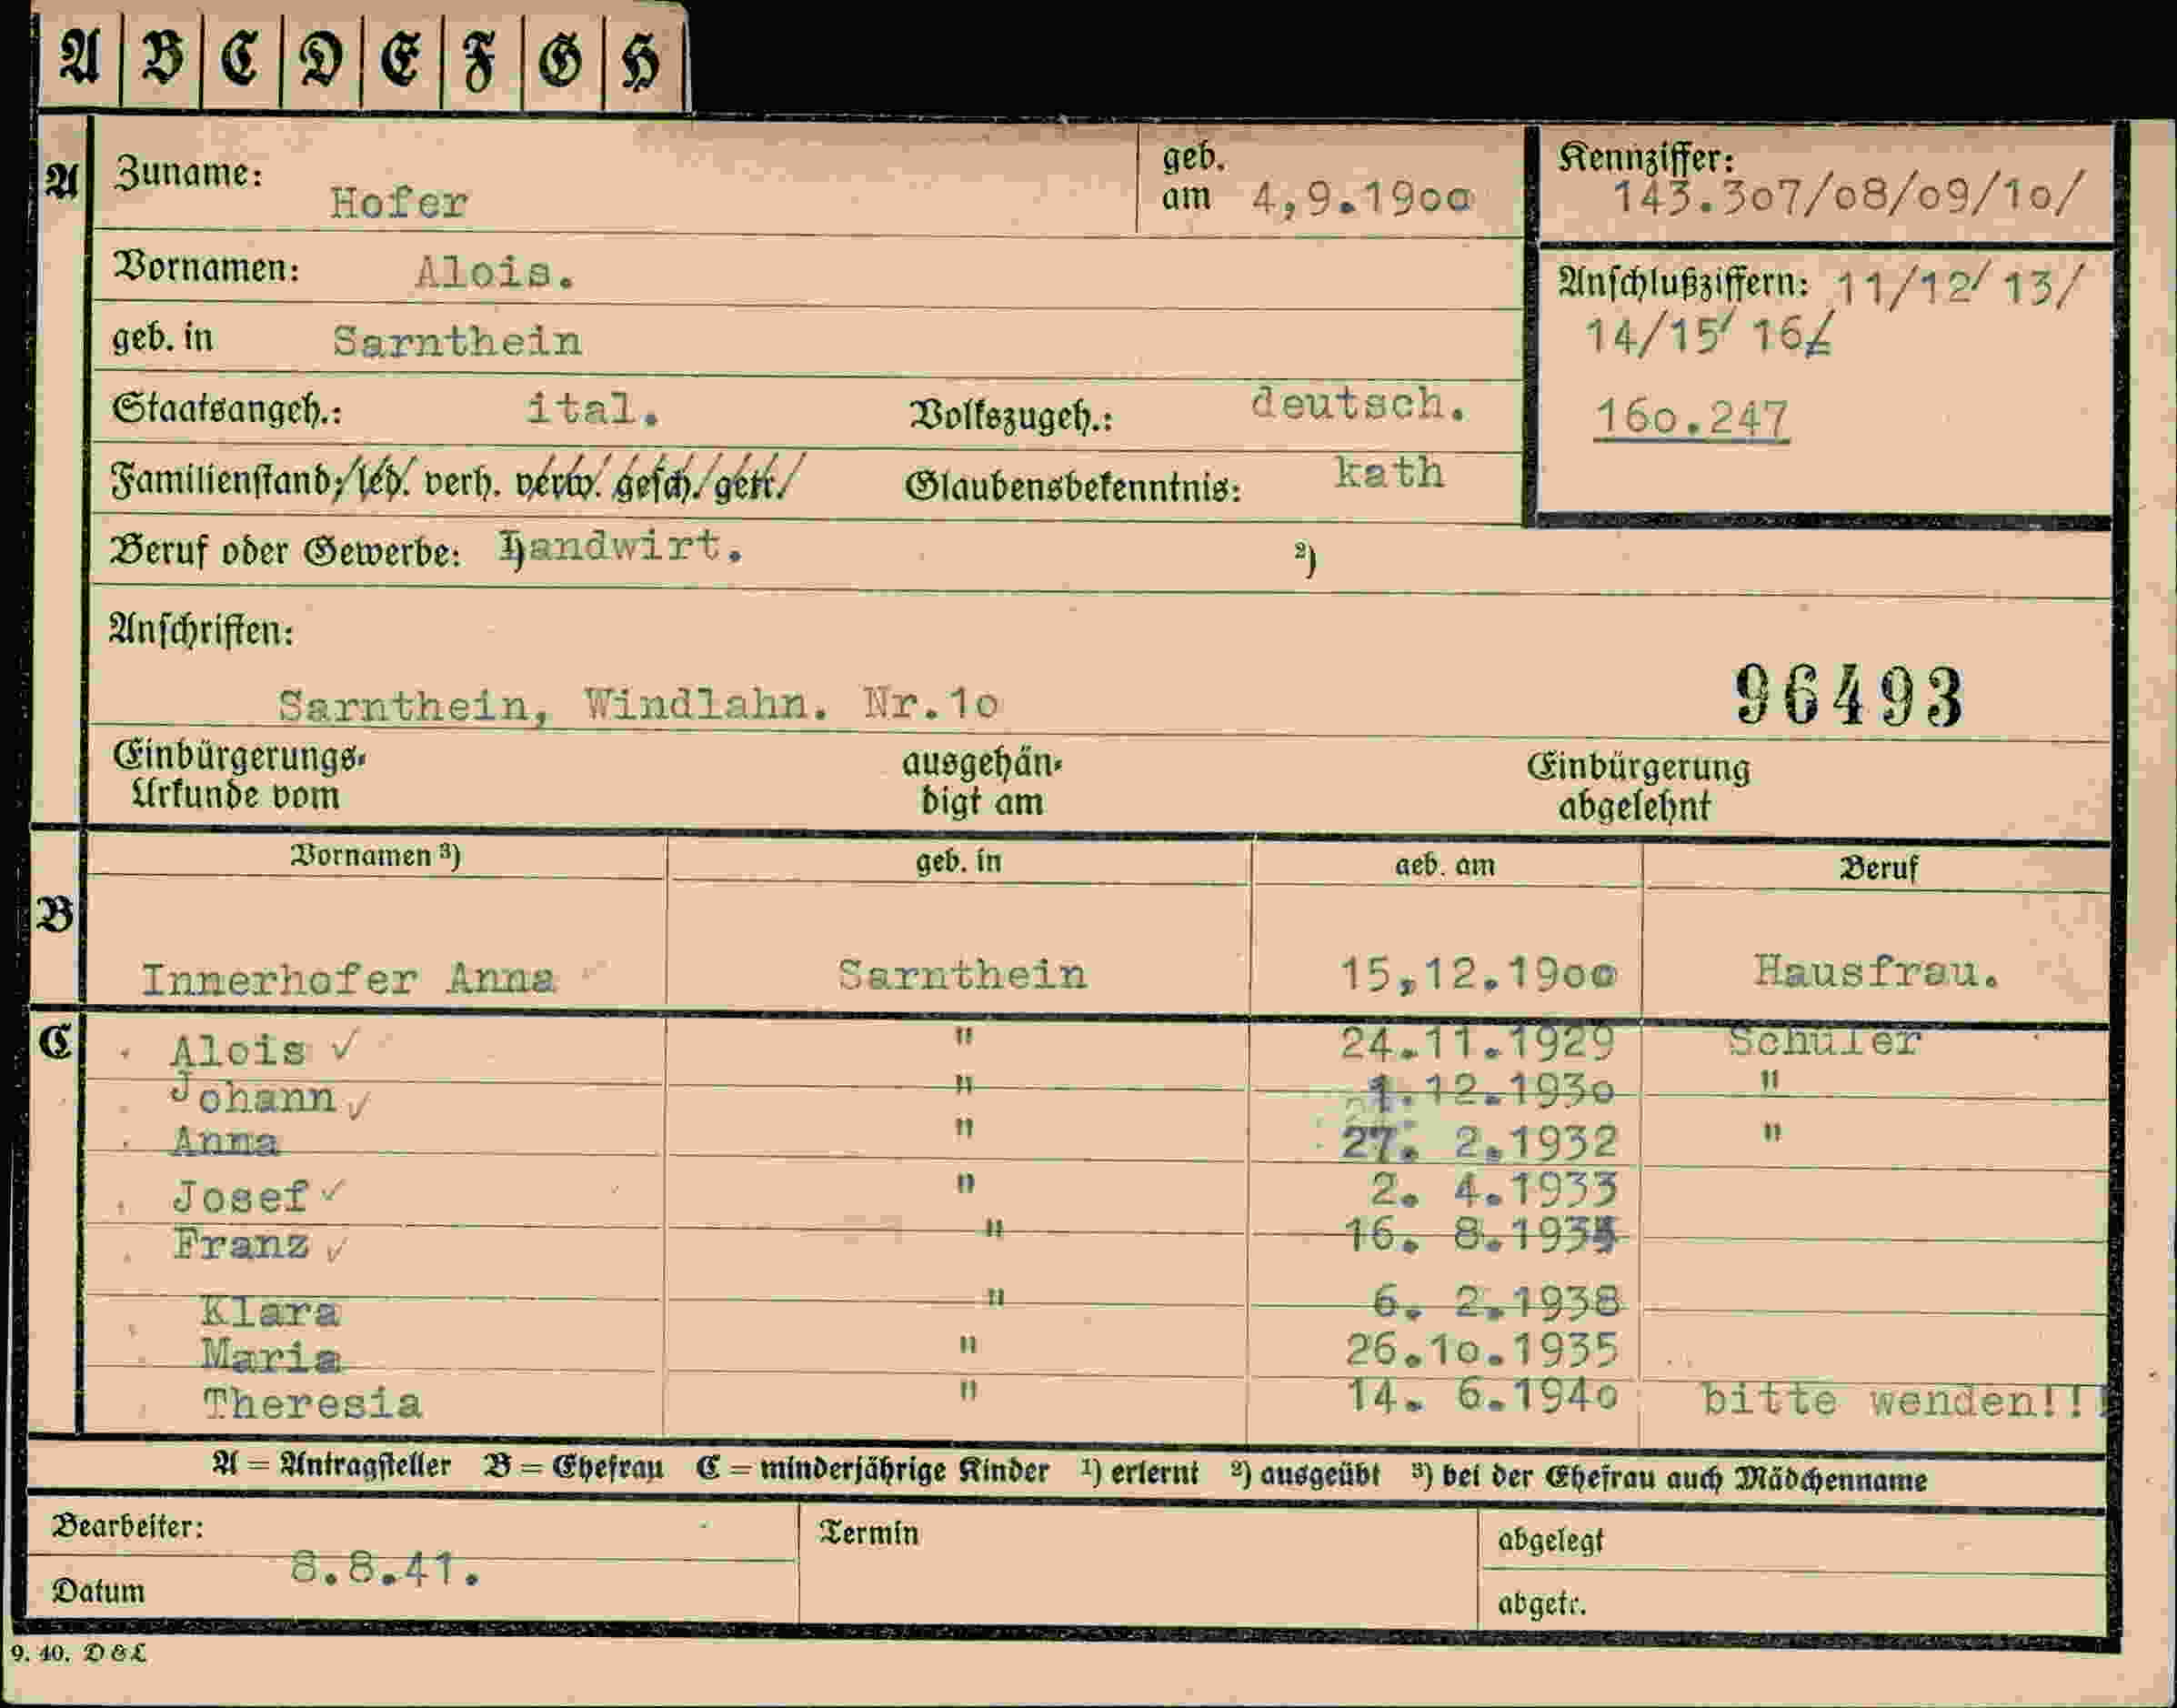 A B C D E F G H
A Zuname: Hofer geb. am 4,9.1900 Kennziffer: 143.307/08/09/10/
Vornamen: Alois. Anschlußziffern: 11/12/ 13/
geb. in Sarnthein 14/15/ 16/
Staatsangeh.: ital. Volkszugeh.: deutsch. 160.247
Familienstand: led. verh. verw. gesch. getr. Glaubensbekenntnis: kath
Beruf oder Gewerbe: Landwirt. 2)
Anschriften:
Sarnthein, Windlahn. Nr.10 96493
Einbürgerungs-Urkunde vom ausgehändigt am Einbürgerung abgelehnt
B Vornamen 3) geb. in geb. am Beruf
Innerhofer Anna Sarnthein 15,12.1900 Hausfrau.
C Alois ✓ " 24.11.1929 Schüler
Johann ✓ " 1.12.1930 "
Anna " 27. 2.1932 "
Josef ✓ " 2. 4.1933
Franz ✓ " 16. 8.1934
Klara " 6. 2.1938
Maria " 26.10.1935
Theresia " 14. 6.1940 bitte wenden!!!
A = Antragsteller B = Ehefrau C = minderjährige Kinder 1) erlernt 2) ausgeübt 3) bei der Ehefrau auch Mädchenname
Bearbeiter: Termin abgelegt
Datum 8.8.41. abgetr.
9. 40. D & L